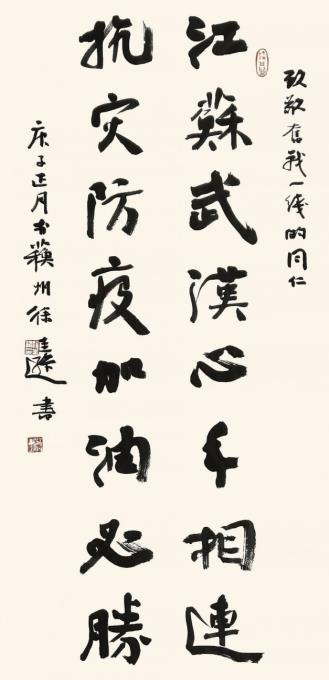 致敬奮战一綫的同仁
江蘇武漢心手相連
抗灾防疫加油必勝
庚子正月於蘇州徐書